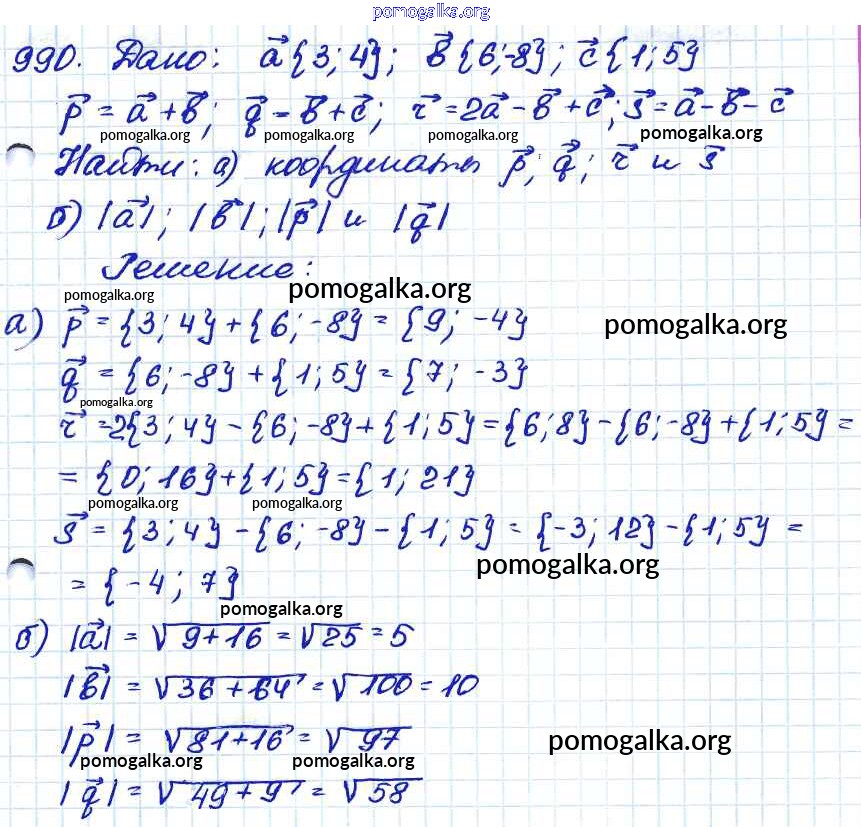 pomogalka.org
990. Дано: a⃗{3; 4}; b⃗{6;-8}; c⃗{1; 5}
p⃗ = a⃗ + b⃗; q⃗ = b⃗ + c⃗; r⃗ = 2a⃗ - b⃗ + c⃗; s⃗ = a⃗ - b⃗ - c⃗
pomogalka.org pomogalka.org pomogalka.org pomogalka.org
Найти: а) координаты p⃗, q⃗; r⃗ и s⃗
б) |a⃗|; |b⃗|; |p⃗| и |q⃗|
Решение:
pomogalka.org pomogalka.org
а) p⃗ = {3; 4} + {6; -8} = {9; -4}
pomogalka.org
q⃗ = {6; -8} + {1; 5} = {7; -3}
pomogalka.org
r⃗ = 2{3; 4} - {6; -8} + {1; 5} = {6; 8} - {6; -8} + {1; 5} =
= {0; 16} + {1; 5} = {1; 21}
pomogalka.org pomogalka.org
s⃗ = {3; 4} - {6; -8} - {1; 5} = {-3; 12} - {1; 5} =
pomogalka.org
= {-4; 7}
pomogalka.org
б) |a⃗| = √9+16 = √25 = 5
|b⃗| = √36+64 = √100 = 10
|p⃗| = √81+16 = √97
pomogalka.org
pomogalka.org pomogalka.org
|q⃗| = √49+9 = √58